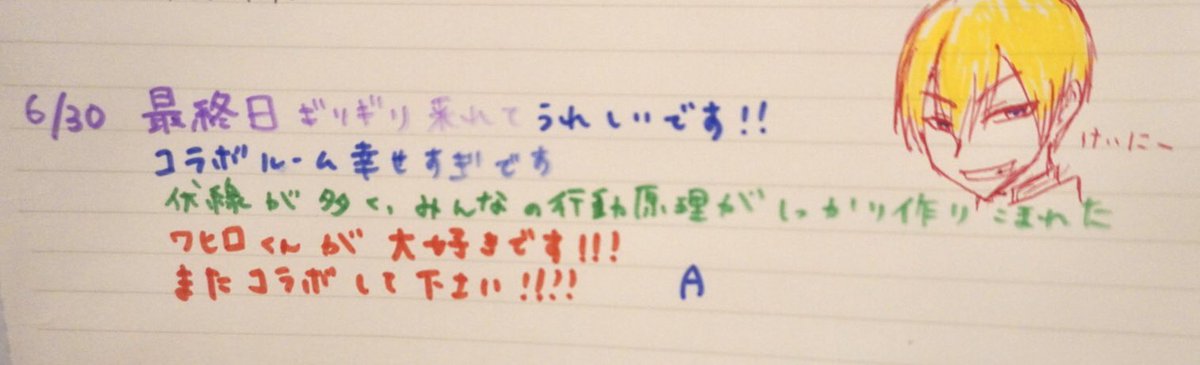 6/30 最終日ギリギリ来れてうれしいです!!
コラボルーム幸せすぎです
伏線が多く、みんなの行動原理がしっかり作りこまれた
ワヒロくんが大好きです!!!
またコラボして下さい!!!!
A
けいにー